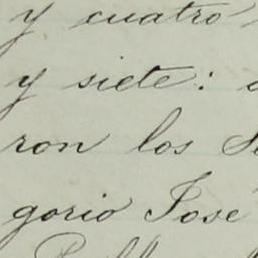 y cuatro
y siete:
ron los
gorio José